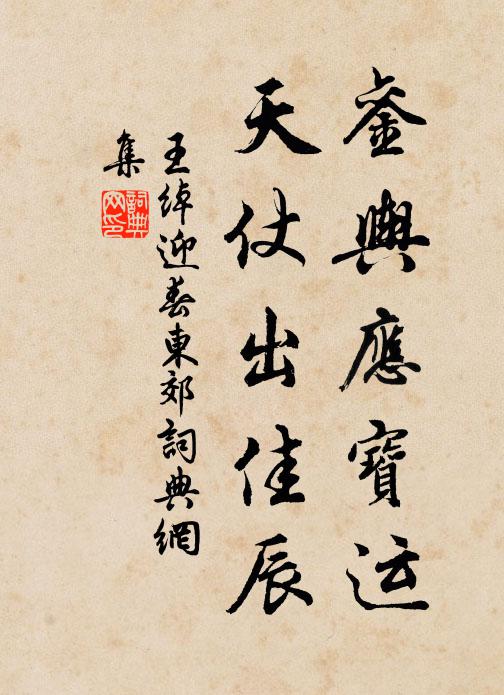 銮輿應寶运
天仗出佳辰
王绰迎春東郊詞典網
集
詞典
网印